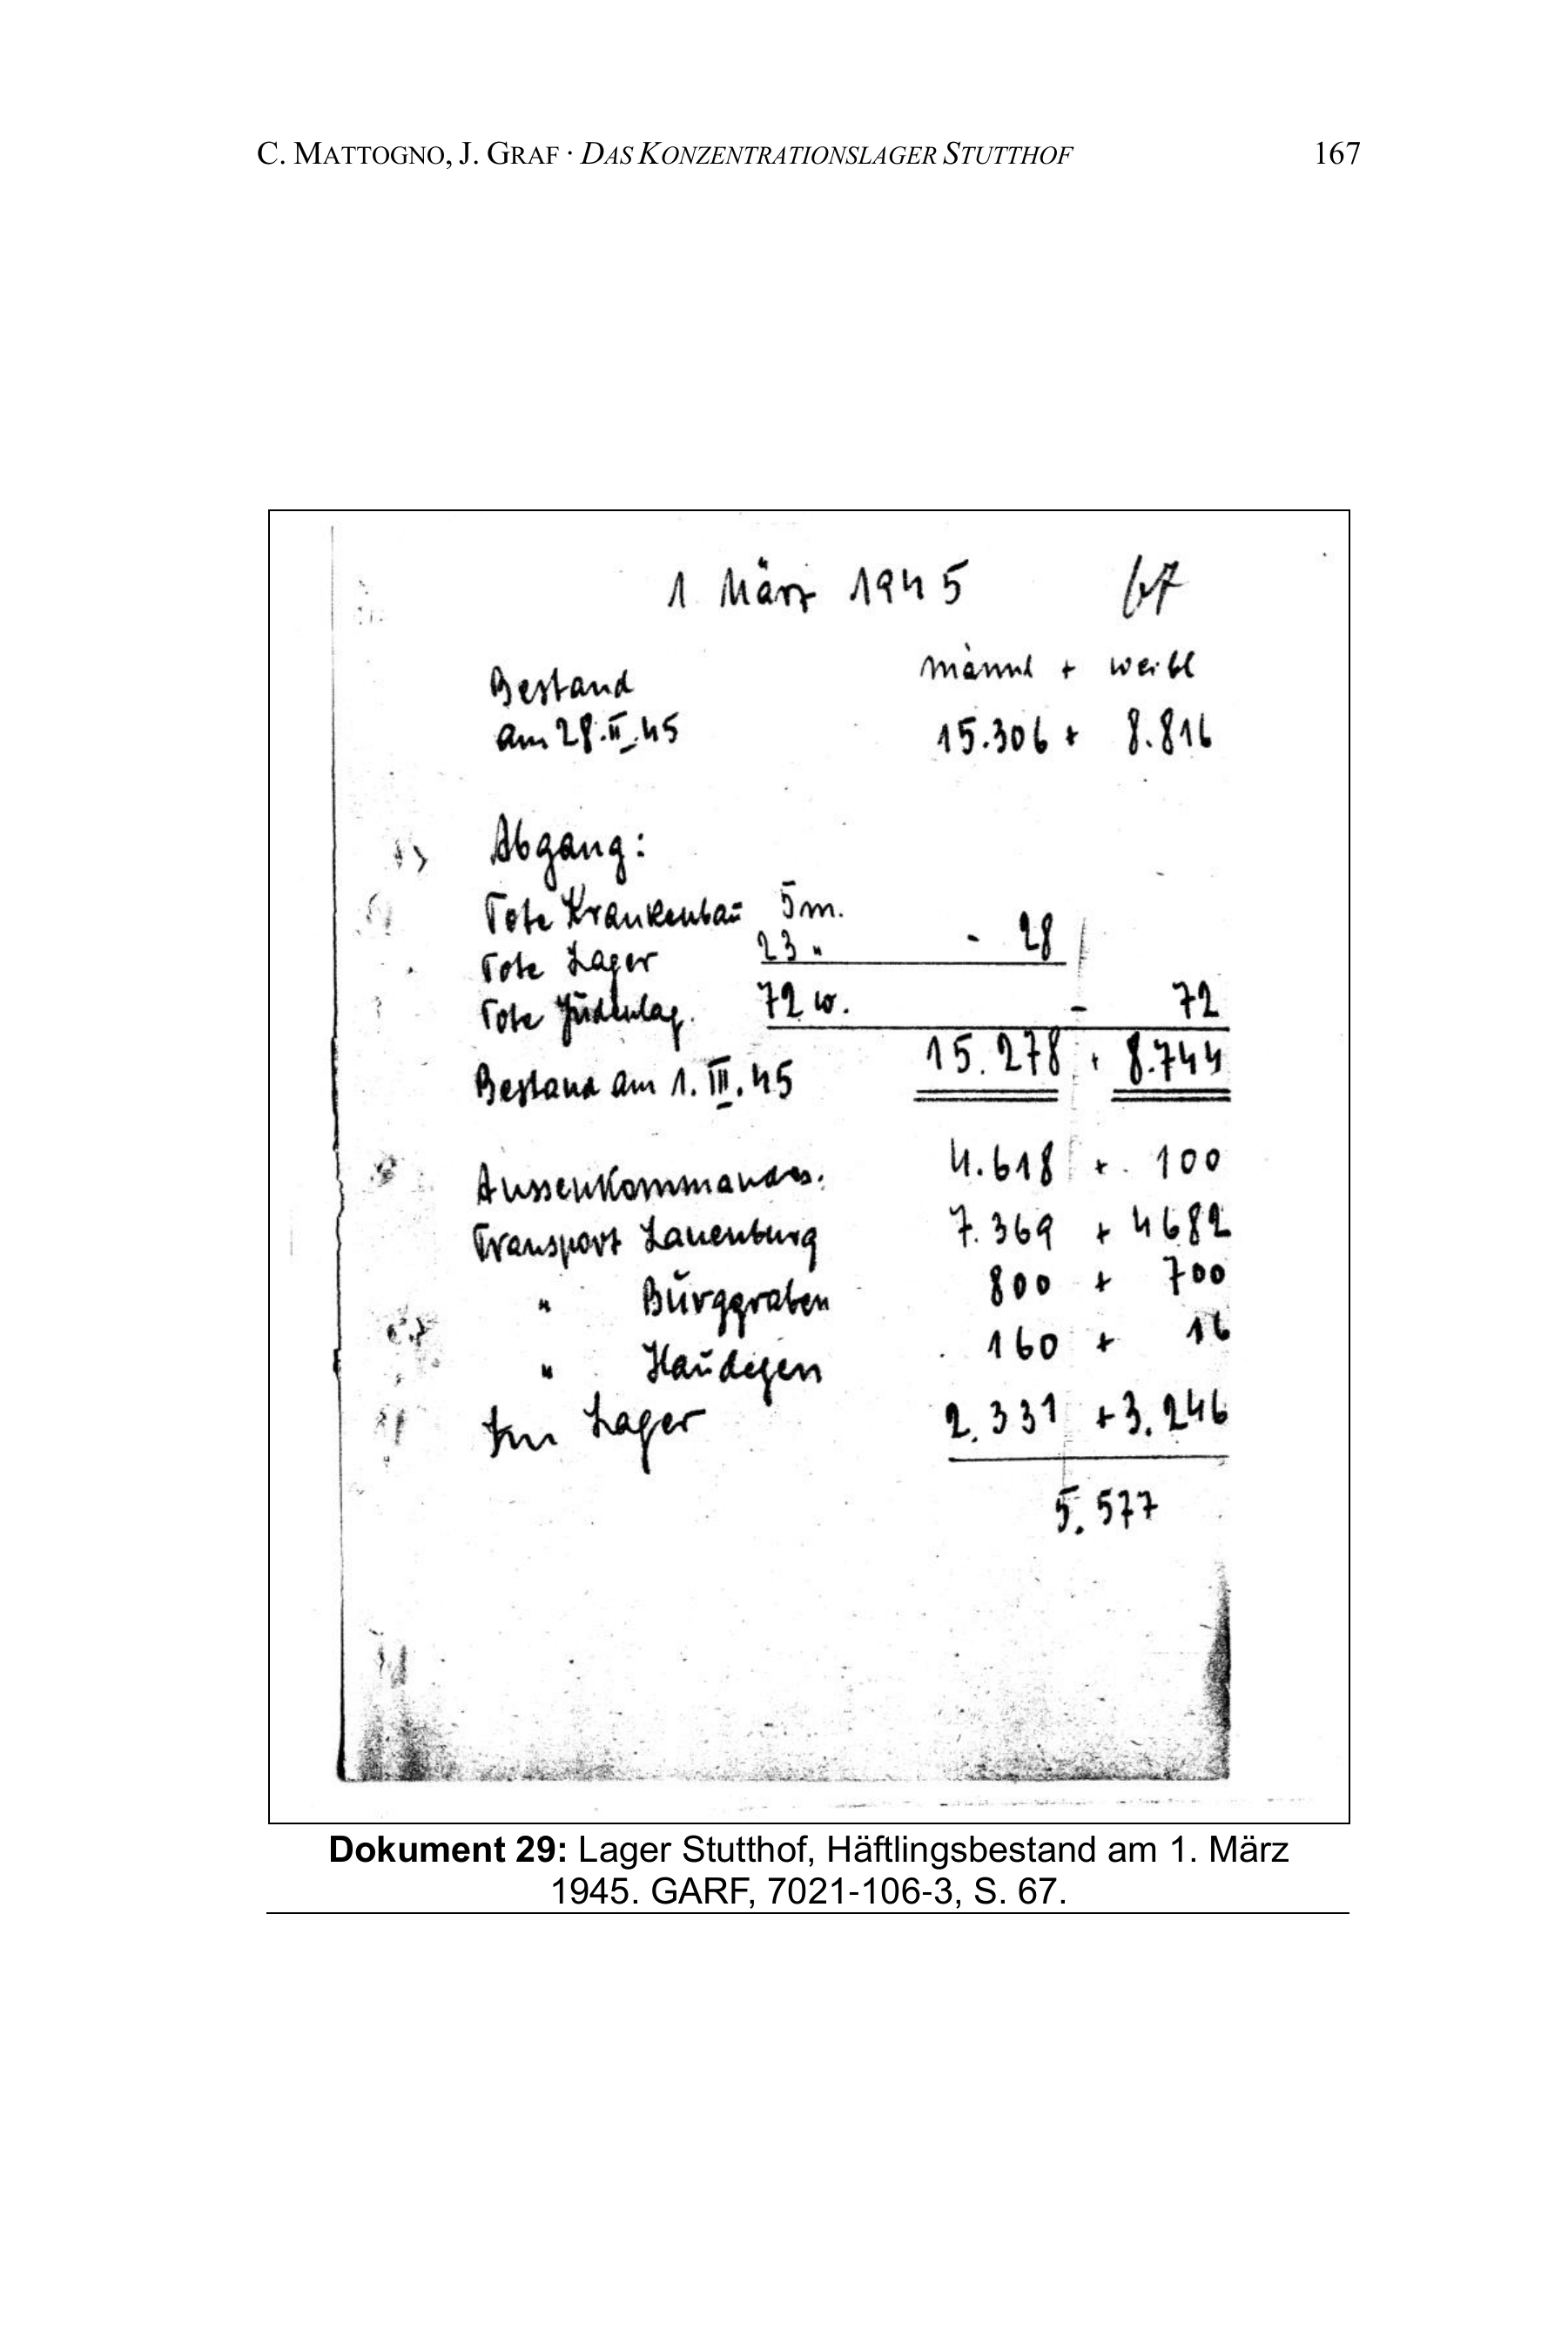 C. MATTOGNO, J. GRAF · DAS KONZENTRATIONSLAGER STUTTHOF 167
1 März 1945 67
Bestand männl + weibl
am 28.II.45 15.306 + 8.816
Abgang:
Tote Krankenbau 5 m.
Tote Lager 23 " - 28
Tote Judenlag. 72 w. - 72
Bestand am 1.III.45 15.278 + 8.744
Aussenkommandos. 4.618 + 100
Transport Lauenburg 7.369 + 4682
" Burggraben 800 + 700
" Haudegen 160 + 16
Im Lager 2.331 + 3.246
5.577
Dokument 29: Lager Stutthof, Häftlingsbestand am 1. März
1945. GARF, 7021-106-3, S. 67.